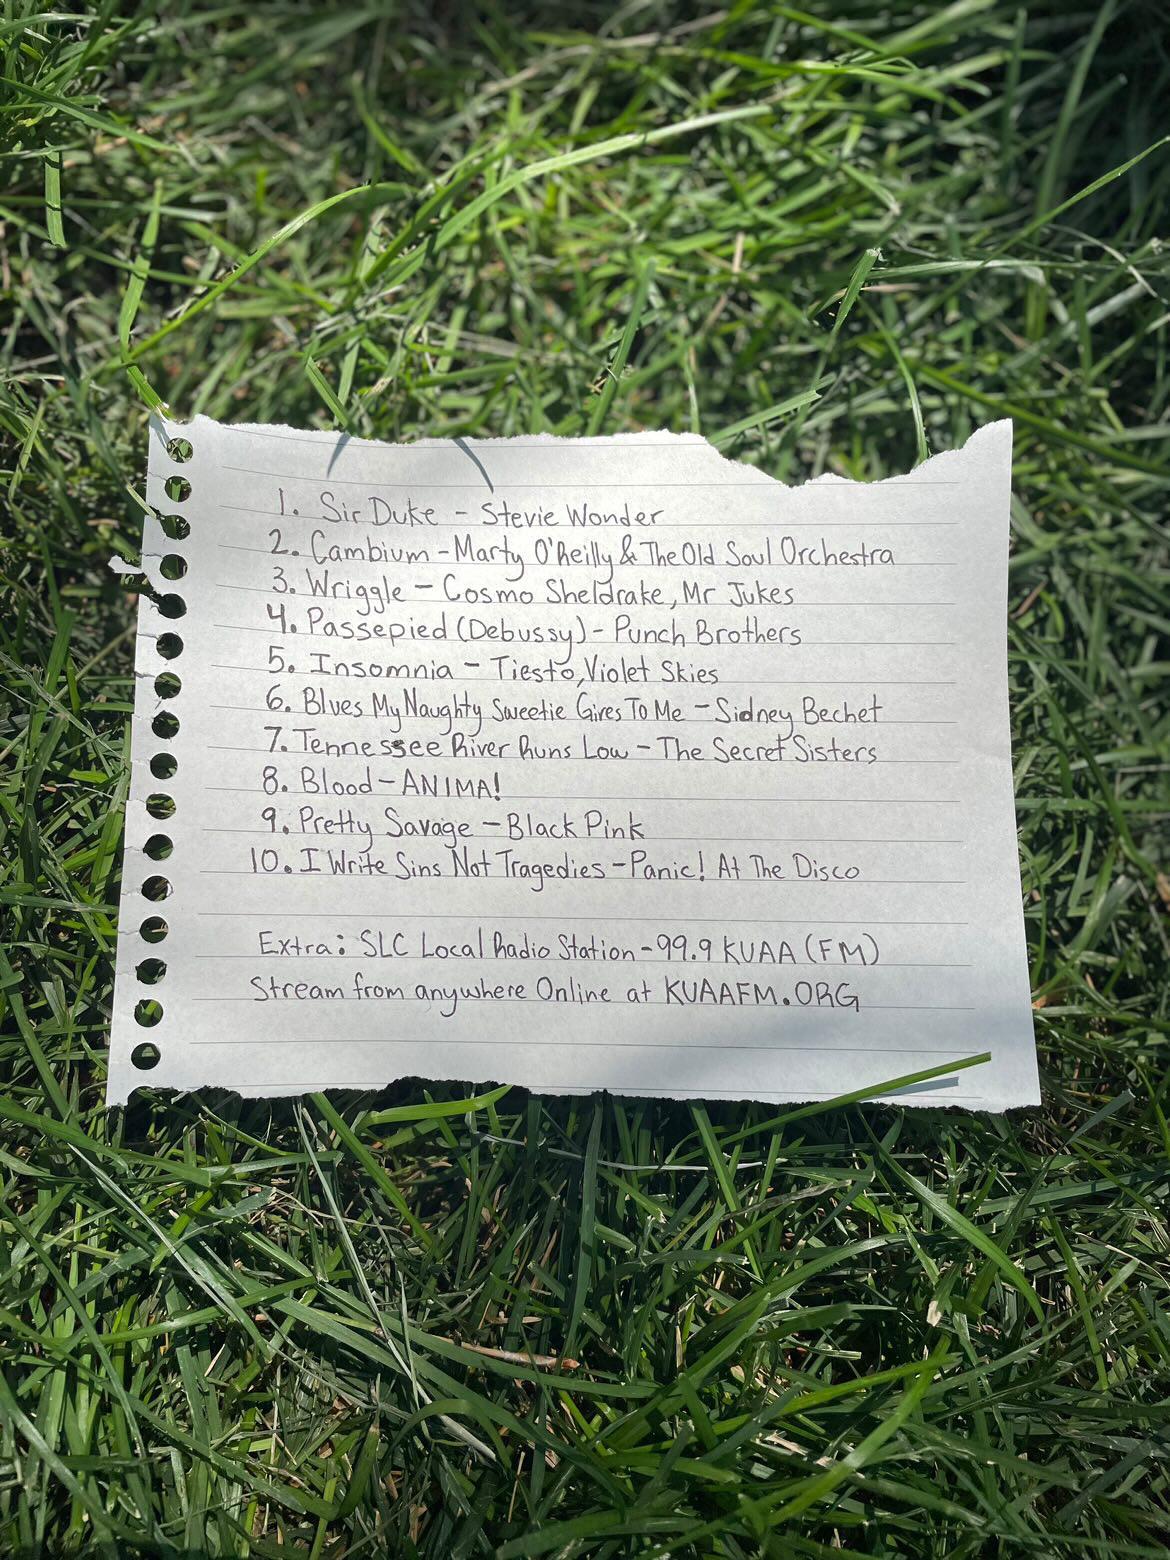 1. Sir Duke - Stevie Wonder
2. Cambium - Marty O'Reilly & The Old Soul Orchestra
3. Wriggle - Cosmo Sheldrake, Mr Jukes
4. Passepied (Debussy) - Punch Brothers
5. Insomnia - Tiesto, Violet Skies
6. Blues My Naughty Sweetie Gives To Me - Sidney Bechet
7. Tennessee River Runs Low - The Secret Sisters
8. Blood - ANIMA!
9. Pretty Savage - Black Pink
10. I Write Sins Not Tragedies - Panic! At The Disco
Extra: SLC Local Radio Station - 99.9 KUAA (FM)
Stream from anywhere Online at KUAAFM.ORG